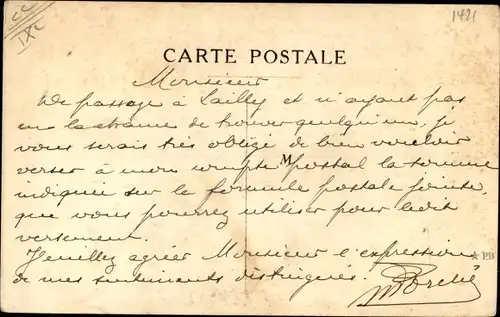 1421
CARTE POSTALE
Monsieur
De passage à Sailly et n'ayant pas
eu la chance de trouver quelqu'un, je
vous serais très obligé de bien vouloir
verser à mon compte postal la somme
M
indiquée sur la formule postale jointe,
que vous pourrez utiliser pour ledit
versement.
Veuillez agréer Monsieur l'expression
de mes sentiments distingués.
* P.B